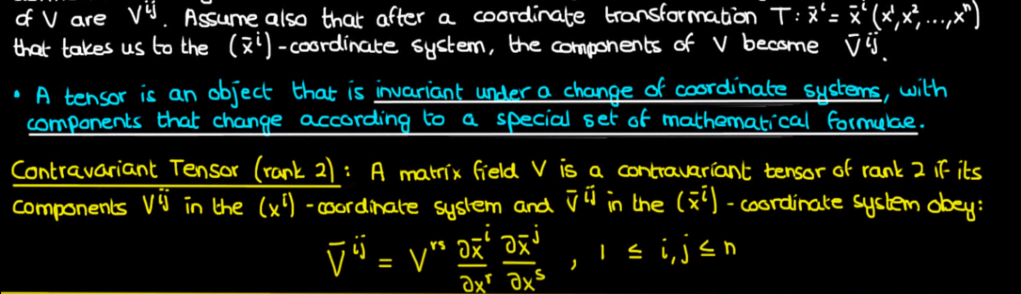 of V are Vⁱʲ. Assume also that after a coordinate transformation T: x̄ⁱ = x̄ⁱ(x¹,x²,...,xⁿ)
that takes us to the (x̄ⁱ)-coordinate system, the components of V become V̄ⁱʲ.
• A tensor is an object that is invariant under a change of coordinate systems, with
components that change according to a special set of mathematical formulae.
Contravariant Tensor (rank 2): A matrix field V is a contravariant tensor of rank 2 if its
components Vⁱʲ in the (xⁱ)-coordinate system and V̄ⁱʲ in the (x̄ⁱ)-coordinate system obey:
V̄ⁱʲ = Vʳˢ ∂x̄ⁱ/∂xʳ ∂x̄ʲ/∂xˢ , 1 ≤ i,j ≤ n